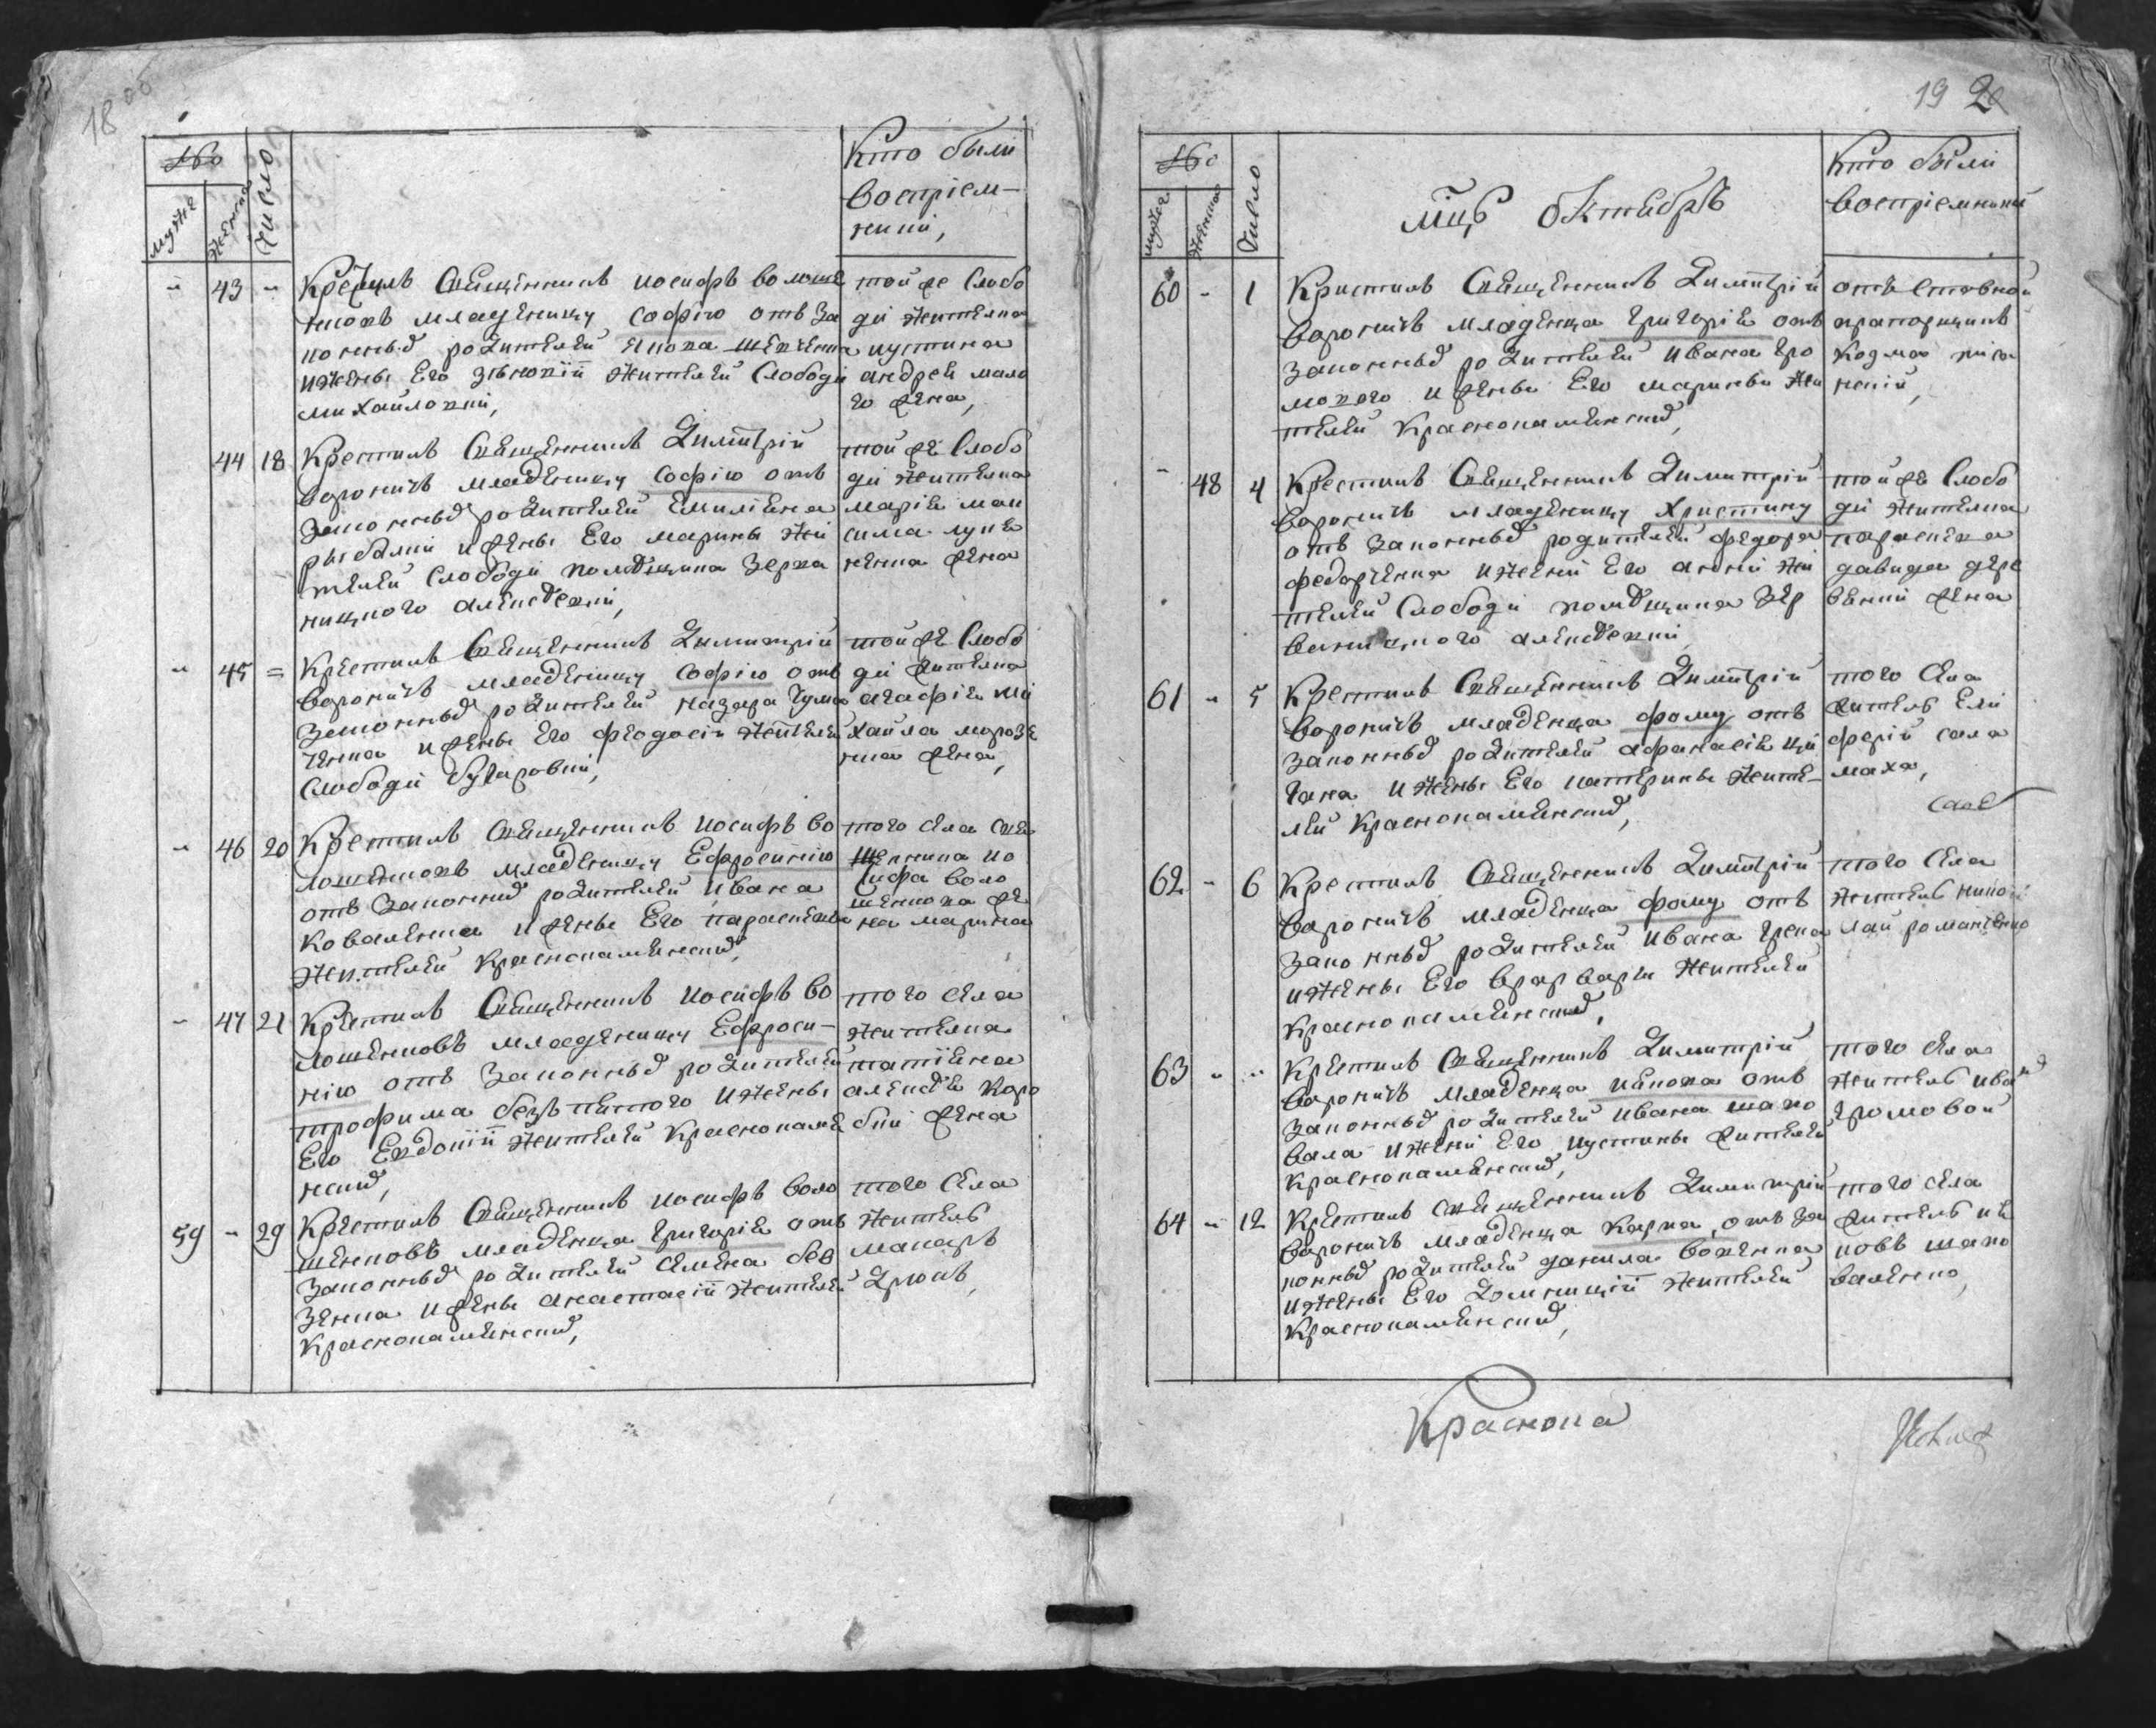 18 об
№
мужеска
женска
число
Кто были
воспріем-
ники,
" 43 " Крестилъ Священникъ иосифъ волоше
нковъ младеницу софію отъ за
конныхъ родителей якова шевченка
ижены его зѣновіи жителей слободи
михайловки,
той же слобо
ди жителка
иустина
андрея мало
го жена,
44 18 Крестилъ Священникъ Димитрій
Вороничъ младеницу софію отъ
законныхъ родителей Емиліяна
рыбалки и жены Его марины жи
телей слободи помѣщика
ницкого алексѣевки,
той же слобо
ди жителка
марія мак
сима луце
нка жена
" 45 = Крестилъ Священникъ Димитрій
Вороничъ младеницу софію отъ
законныхъ родителей назара
ченка и жены Его феодосіи жителей
слободи
той же слобо
ди жителка
агафія ми
хайла морозе
нка жена,
" 46 20 Крестилъ Священникъ иосифъ во
лошенковъ младеницу Ефросинію
отъ законныхъ родителей ивана
Коваленка и жены Его параскевы
жителей краснокаменскихъ,
того села свя
щенника ио
сифа воло
шенкова же
на марина
" 47 21 Крестилъ Священникъ иосифъ во
лошенковъ младеницу Ефроси-
нію отъ законныхъ родителей
трофима безъпятого ижены
Его Евдокіи жителей краснокаме
нскихъ,
того села
жителка
татіяна
алексѣя коро
бки жена
59 " 29 Крестилъ Священникъ иосифъ воло
шенковъ младенца григорія отъ
законныхъ родителей семена без
зенка и жены анастасіи жителей
краснокаменскихъ,
того села
житель
макаръ
19
№
мужеска
женска
Число
мцъ октябрь
Кто были
воспріемники
60 " 1 Крестилъ Священникъ Димитрій
Вороничъ младенца григорія отъ
законныхъ родителей ивана гро
мового и жены Его марины жи
телей краснокаменскихъ,
отъставной
прапорщикъ
Козма
" 48 4 Крестилъ Священникъ Димитрій
Вороничъ младеницу христину
отъ законныхъ родителей федора
федорченка и жены Его анны жи
телей слободи помѣщика
алексѣевки
той же слобо
ди жителка
параскева
давида дере
вянки жена
61 " 5 Крестилъ Священникъ Димитрій
Вороничъ младенца фому отъ
законныхъ родителей афанасія ци
гана и жены Его катерины жите-
лей краснокаменскихъ,
того села
житель Ели
ферій сала
маха,
62 " 6 Крестилъ Священникъ Димитрій
Вороничъ младенца фому отъ
законныхъ родителей ивана грека
ижены Его варвары жителей
краснокаменскихъ,
того села
житель нико
лай романченко
63 " " Крестилъ Священникъ Димитрій
Вороничъ младенца иякова отъ
законныхъ родителей ивана шапо
вала и жены Его иустины жителей
краснокаменскихъ,
того села
житель иванъ
громовой
64 " 12 Крестилъ Священникъ Димитрій
Вороничъ младенца карпа отъ за
конныхъ родителей данила вовченка
ижены Его Домникіи жителей
краснокаменскихъ,
того села
житель ия
ковъ шапо
валенко,
Краснока